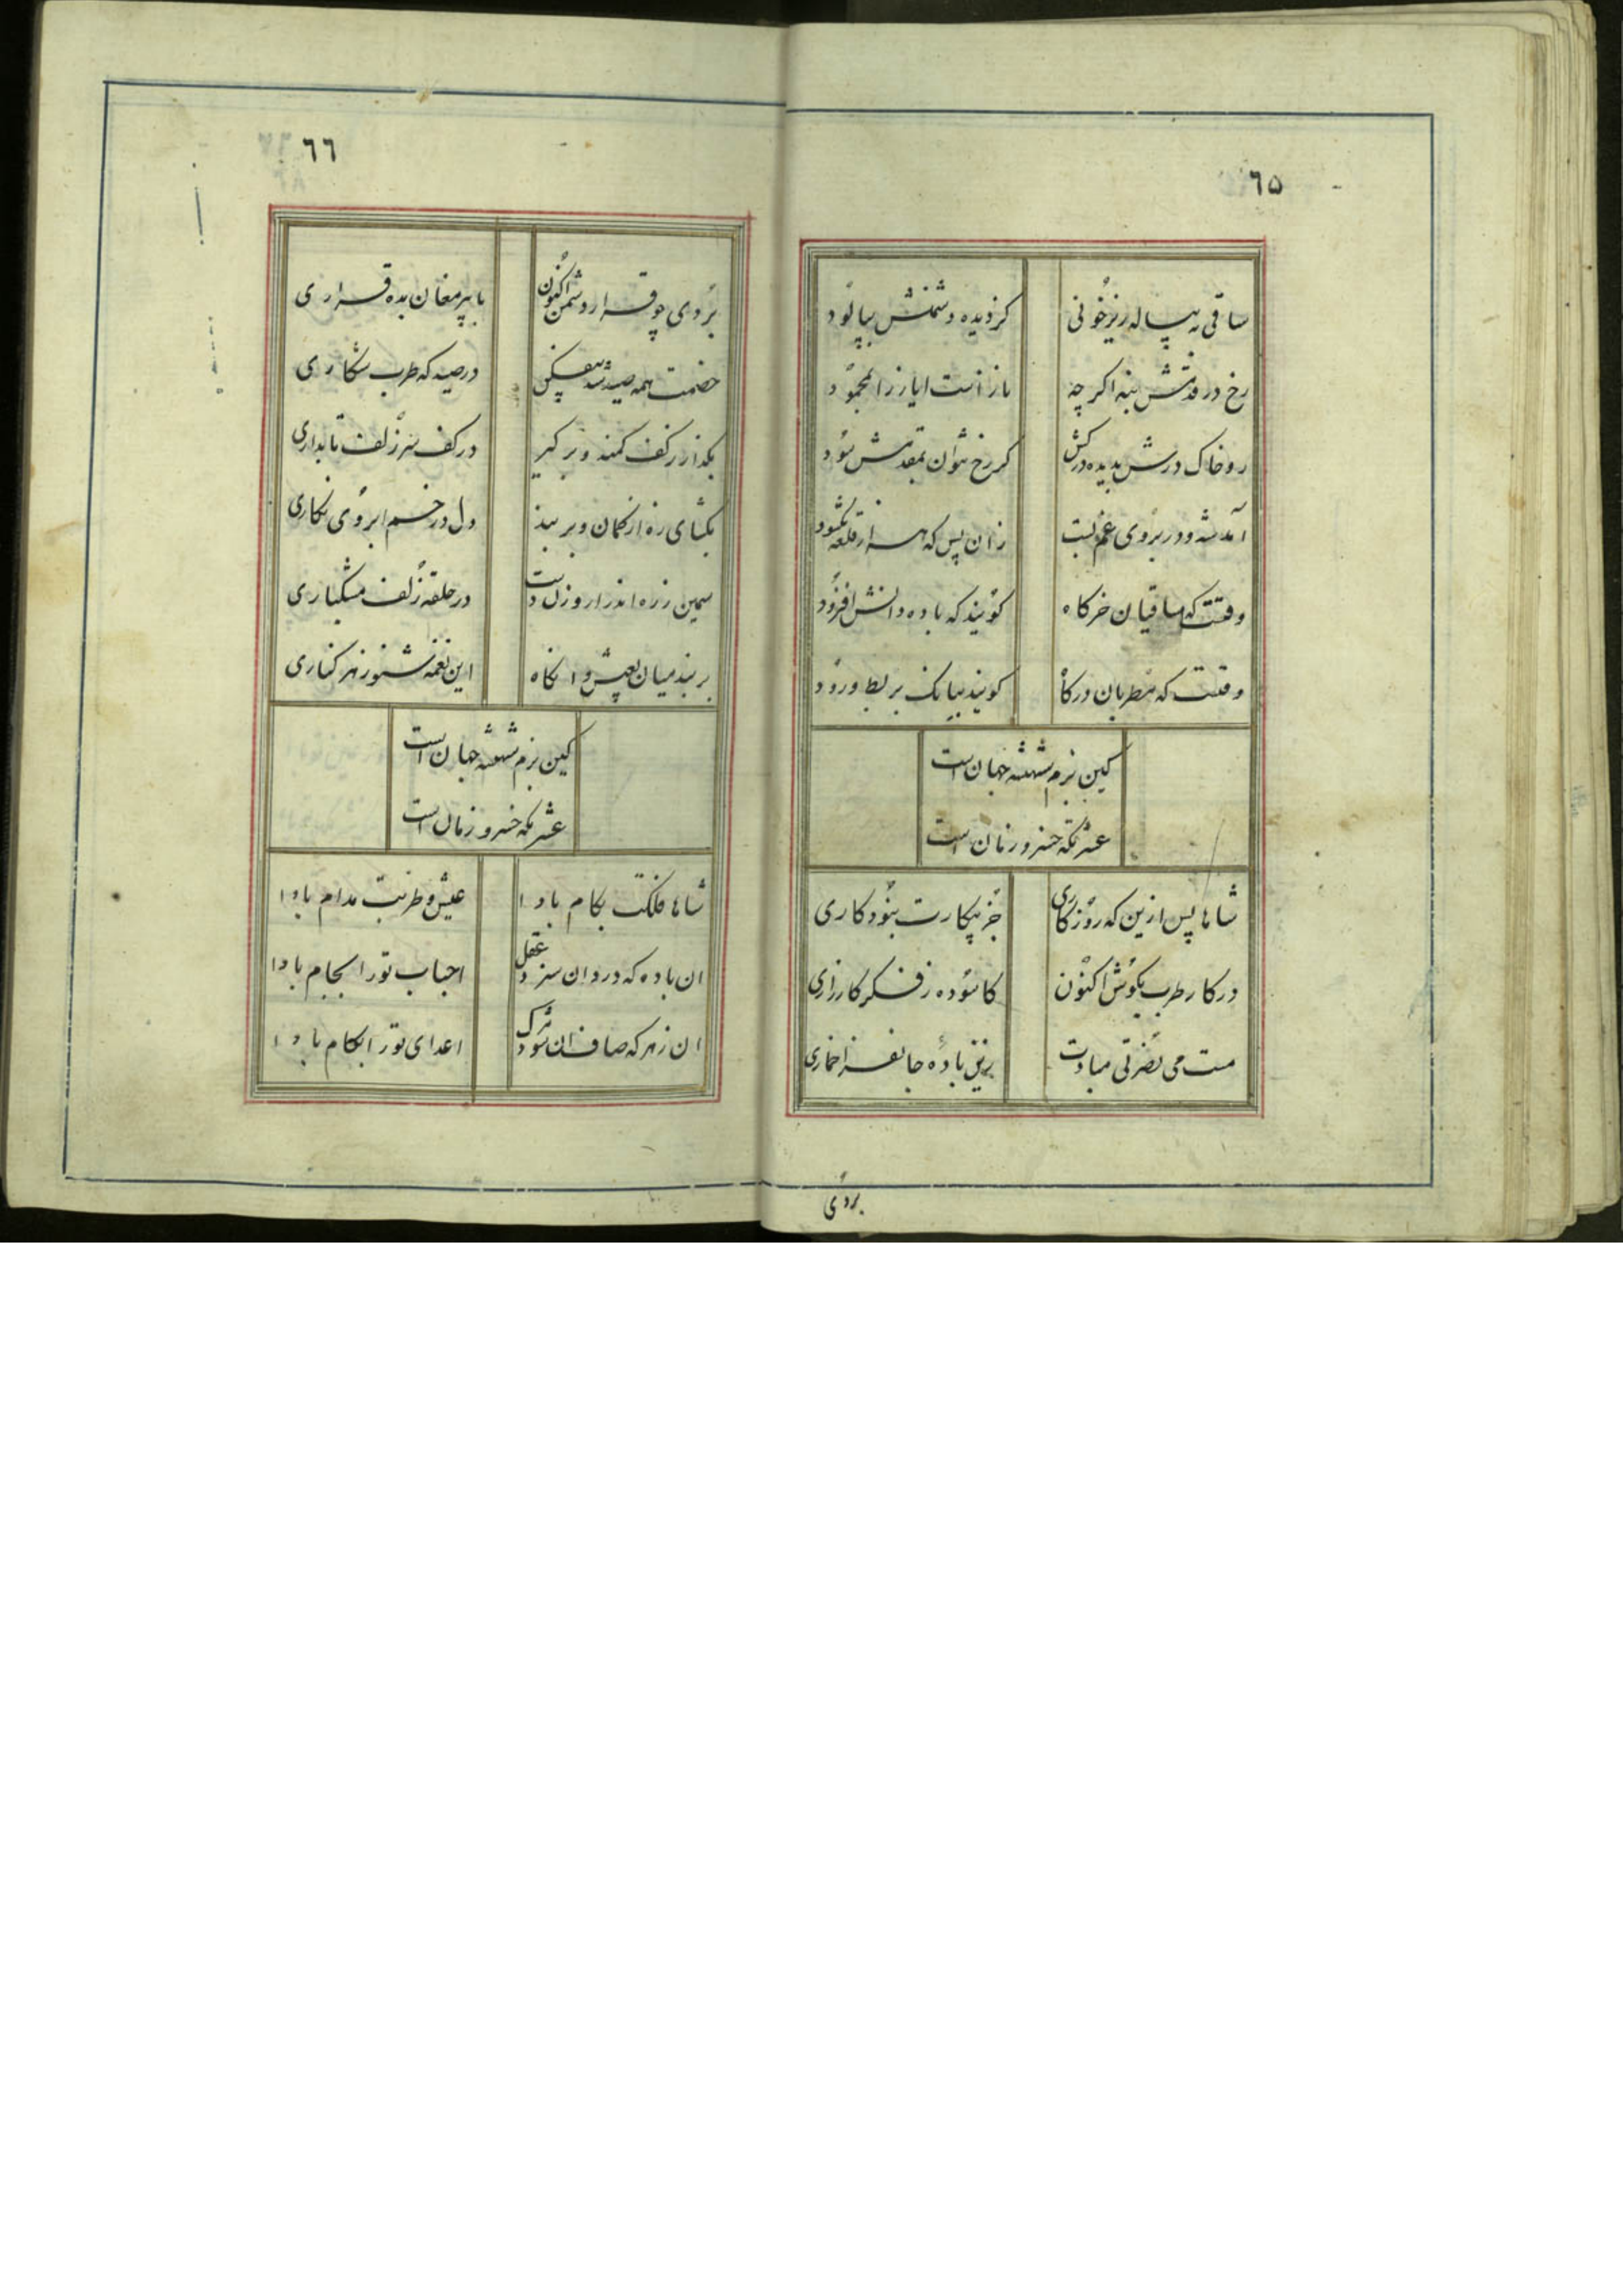 ٦٥
ساقی به پیاله ریز خونی
کز دیده دشمنش بپالود
رخ در قدمش بنه اگر چه
ناز است ایاز را بمحمود
رو خاک درش بدیده درکش
گر رخ نتوان بمقدمش سود
آمد شه و در بروی غم بست
زان پس که هزار قلعه بگشود
وقتست که ساقیان خرگاه
گویند که باده دانش افزود
وقتست که مطربان درگاه
گویند ببانگ بربط و رود
کین بزم شهنشه جهان است
عشرتگه خسرو زمان است
شاها پس ازین که روزگاری
جز پیکارت نبود کاری
در کار طرب بکوش اکنون
کاسوده ز فکر کارزاری
مست می نصرتی مبادت
زین باده جانفزا خماری
بردی
٦٦
بردی چو قرار دشمن اکنون
با پیر مغان بده قراری
خصمت همه صید شد بیفکن
در صیدگه طرب شکاری
بگذار ز کف کمند و بر گیر
در کف سر زلف تابداری
بگشای زه از کمان و بر بند
دل در خم ابروی نگاری
سیمین زره اندر ار و زن دست
در حلقه زلف مشکباری
بر بند میان بعیش و انگاه
این نغمه شنو ز هر کناری
کین بزم شهنشه جهان است
عشرتگه خسرو زمان است
شاها فلکت بکام بادا
عیش و طربت مدام بادا
ان باده که درد ان سزد عقل
احباب تو را بجام بادا
ان زهر که صاف ان شود مرگ
اعدای تو را بکام بادا